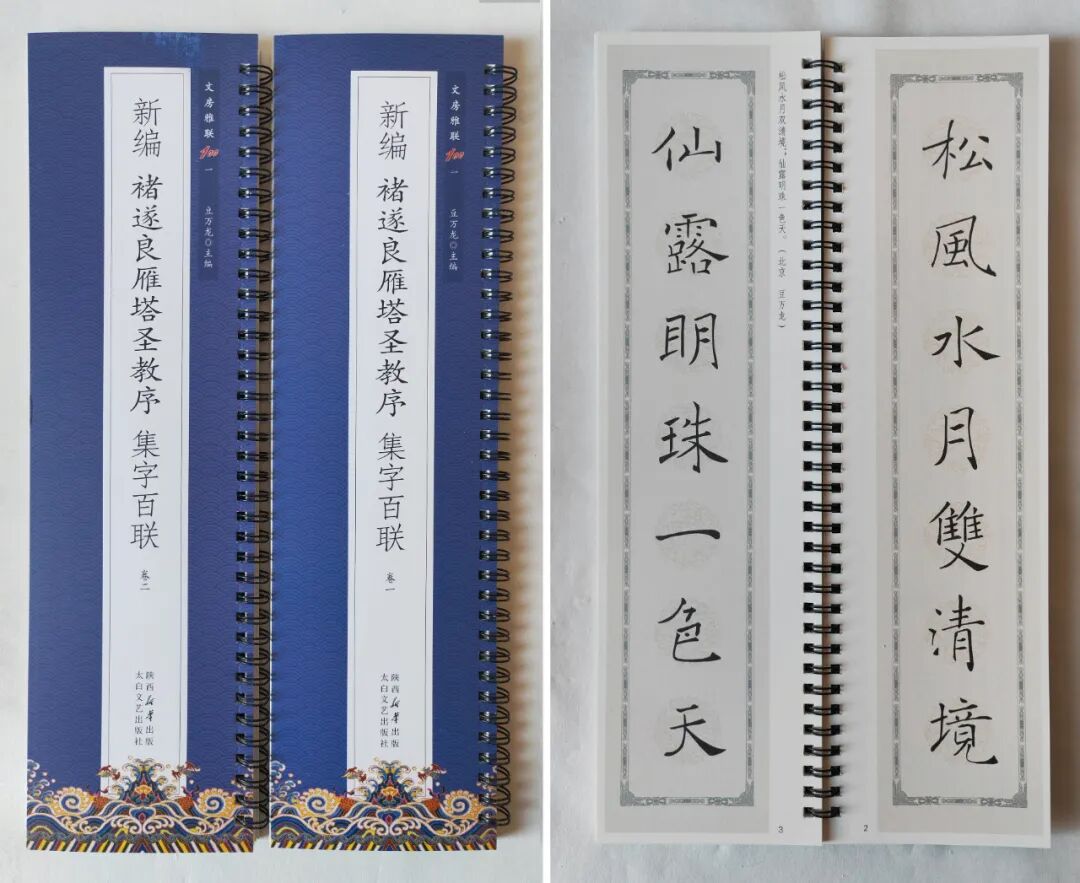 文房雅联100 一 豆万龙◎主编
新编 褚遂良雁塔圣教序 集字百联 卷二
陕西新华出版
太白文艺出版社
文房雅联100 一 豆万龙◎主编
新编 褚遂良雁塔圣教序 集字百联 卷一
陕西新华出版
太白文艺出版社
松風水月雙清境
2
松风水月双清境；仙露明珠一色天。（北京 豆万龙）
仙露明珠一色天
3